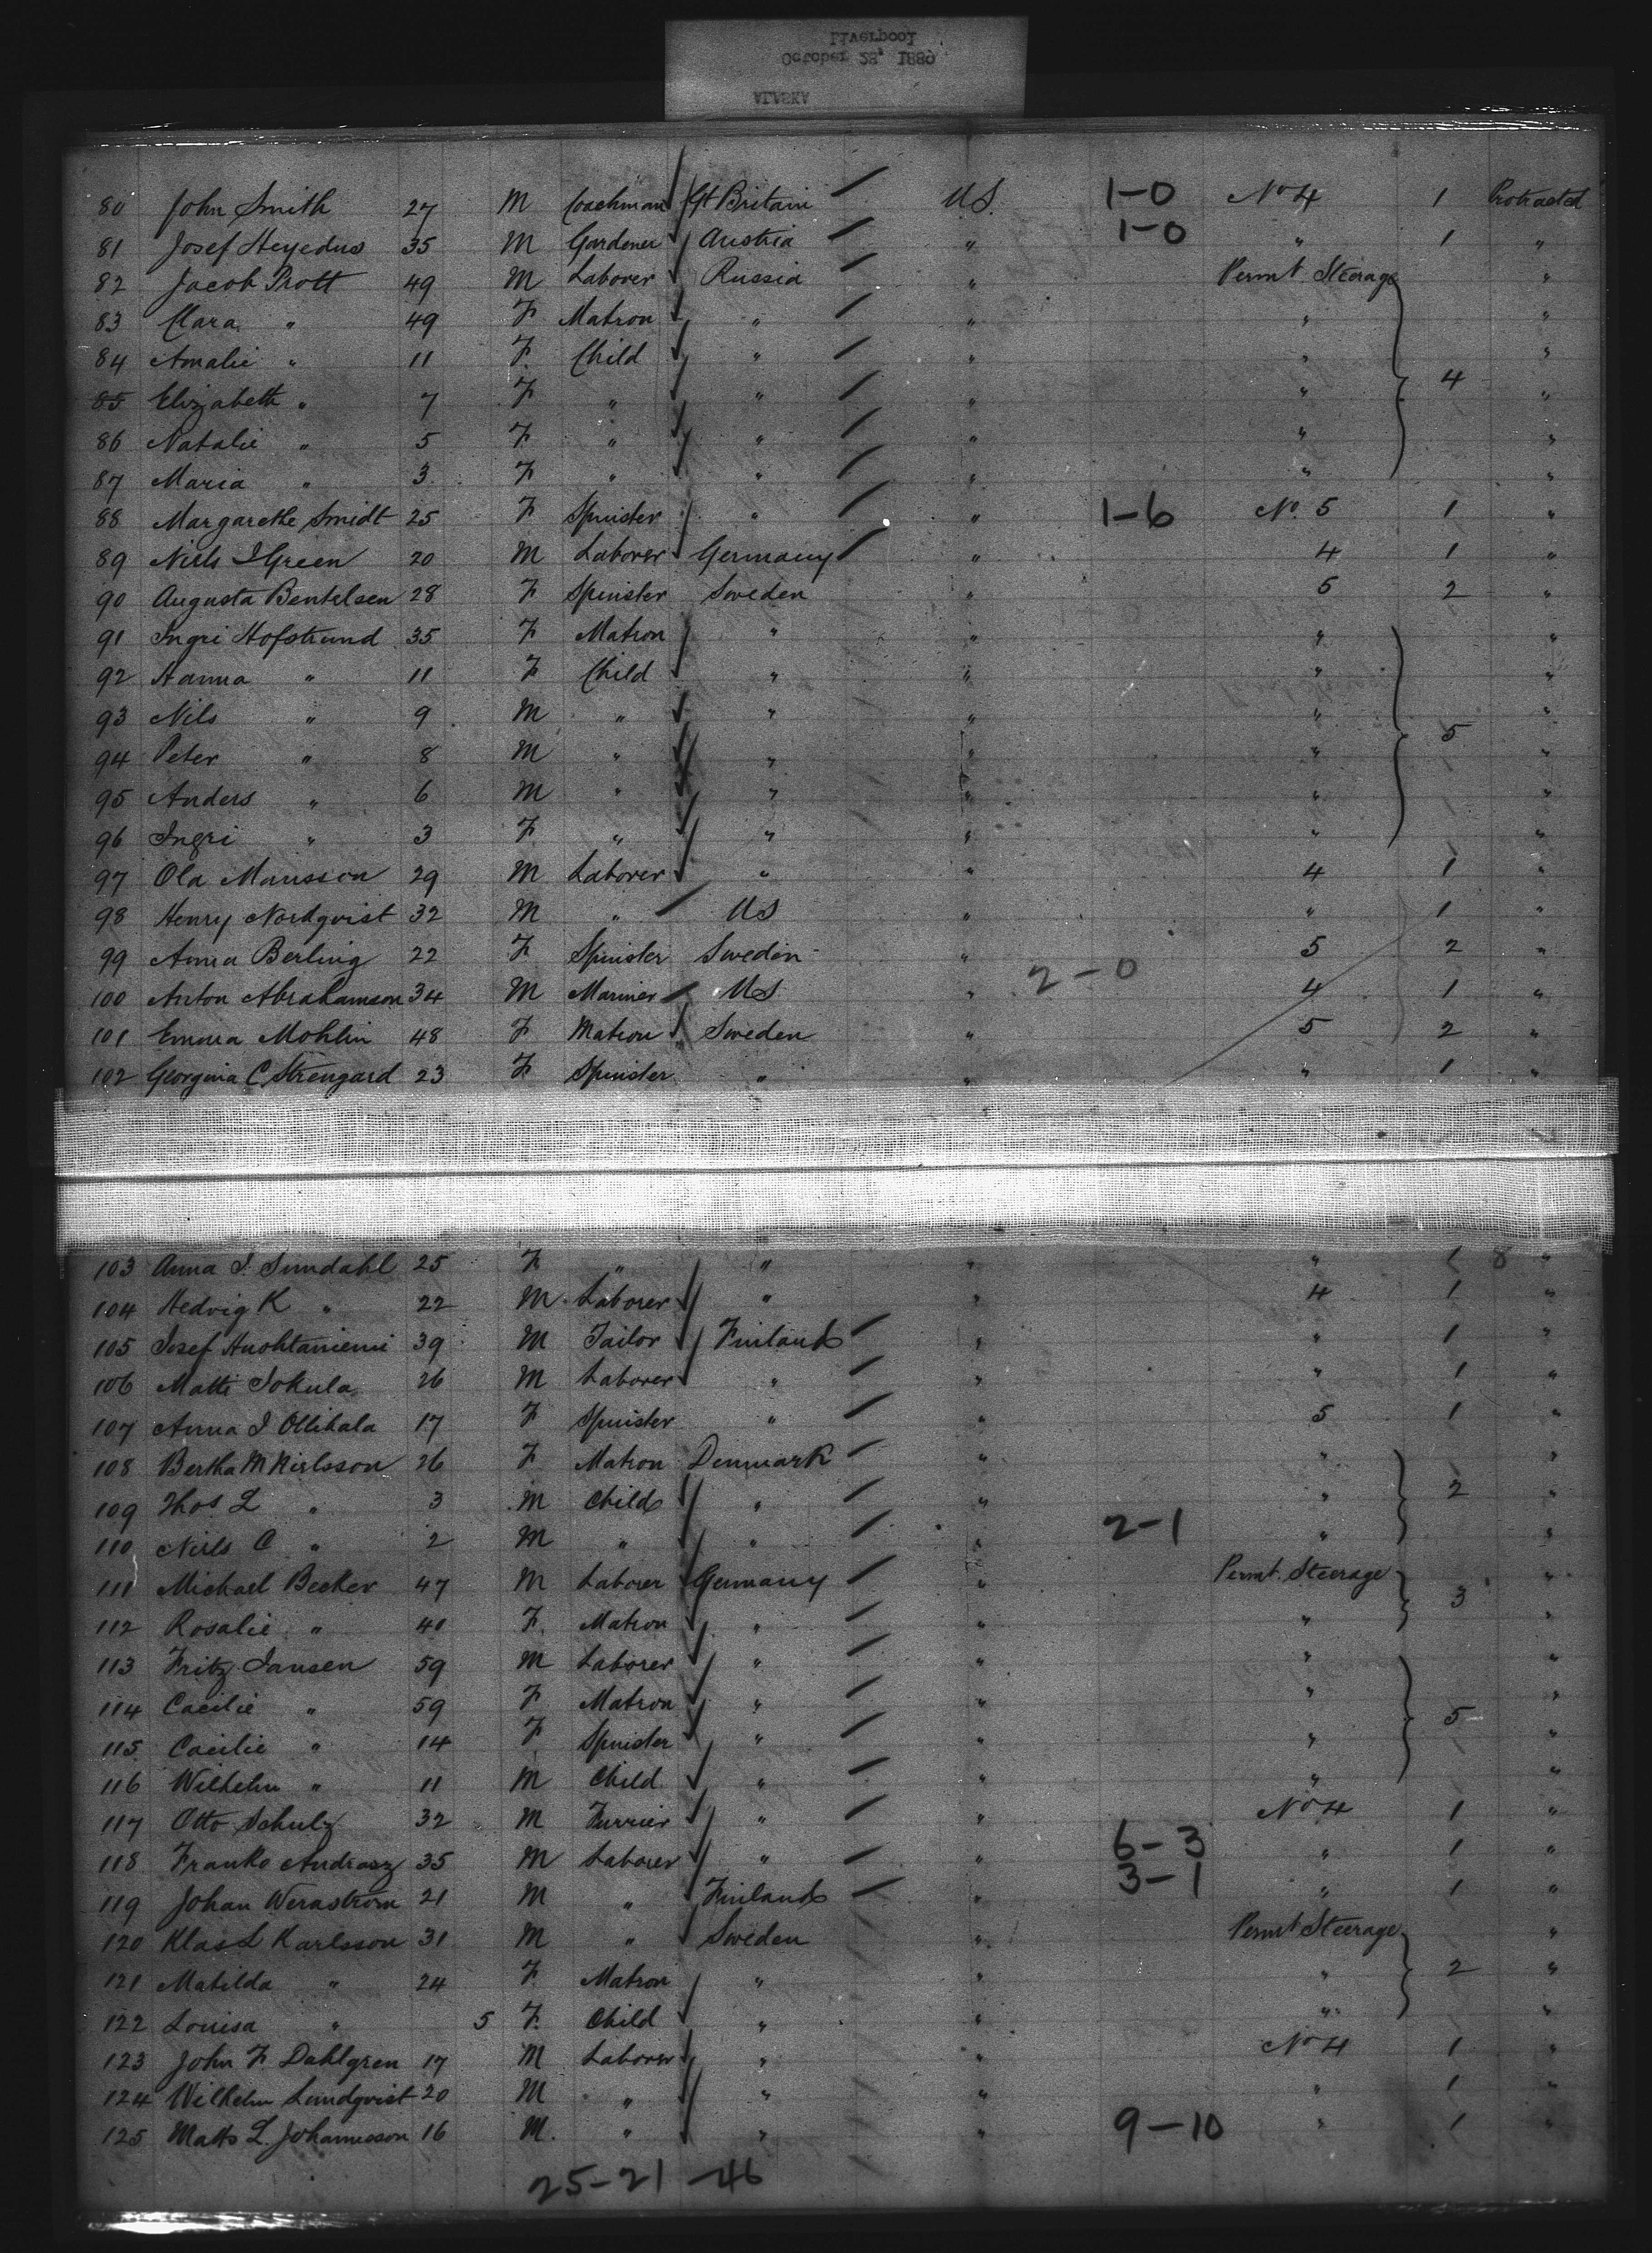 Liverpool
October 28, 1889
ALASKA
80 John Smith 27 M Coachman Gt Britain U.S. 1-0 No 4 1 Protracted
81 Josef Heyedus 35 M Gardener Austria " 1-0 " 1 "
82 Jacob Prott 49 M Laborer Russia " Permt Steerage "
83 Clara " 49 F Matron " " " "
84 Amalie " 11 F Child " " " "
85 Elizabeth " 7 F " " " " 4 "
86 Natalie " 5 F " " " " "
87 Maria " 3 F " " " " "
88 Margarethe Smidt 25 F Spinster " " 1-6 No. 5 1 "
89 Niels I Green 20 M Laborer Germany " 4 1 "
90 Augusta Bentelsen 28 F Spinster Sweden " 5 2 "
91 Ingri Hofstrund 35 F Matron " " " "
92 Hanna " 11 F Child " " " "
93 Nils " 9 M " " " " "
94 Peter " 8 M " " " " 5 "
95 Anders " 6 M " " " " "
96 Ingri " 3 F " " " " "
97 Ola Mansson 29 M Laborer " " 4 1 "
98 Henry Nordqvist 32 M " US " " 1 "
99 Anna Berling 22 F Spinster Sweden " 5 2 "
100 Anton Abrahamson 34 M Mariner US " 2-0 4 1 "
101 Emma Mohlin 48 F Matron Sweden " 5 2 "
102 Georgina C Strengard 23 F Spinster " " " 1 "
103 Anna I. Sundahl 25 F " " " " 1 8 "
104 Hedvig K " 22 M Laborer " " 4 1 "
105 Josef Huohtaniemi 39 M Tailor Finland " " 1 "
106 Matti Jokula 26 M Laborer " " " 1 "
107 Anna I Ollikala 17 F Spinster " " 5 1 "
108 Bertha M Nielsson 26 F Matron Denmark " " "
109 Thos L " 3 M Child " " " 2 "
110 Niels C " 2 M " " " 2-1 " "
111 Michael Becker 47 M Laborer Germany " Permt. Steerage "
112 Rosalie " 40 F. Matron " " " 3 "
113 Fritz Jansen 59 M Laborer " " " "
114 Cacilie " 59 F Matron " " " "
115 Cacilie " 14 F Spinster " " " 5 "
116 Wilhelm " 11 M Child " " " "
117 Otto Schulz 32 M Furrier " " No 4 1 "
118 Franko Andrasz 35 M Laborer " " 6-3 " 1 "
119 Johan Wernstrom 21 M " Finland " 3-1 " 1 "
120 Klas L Karlsson 31 M " Sweden " Permt Steerage "
121 Matilda " 24 F Matron " " " 2 "
122 Louisa " 5 F Child " " " "
123 John F Dahlgren 17 M Laborer " " No 4 1 "
124 Wilhelm Lundqvist 20 M " " " " 1 "
125 Matts L. Johannsson 16 M. " " " 9-10 " 1 "
25-21-46